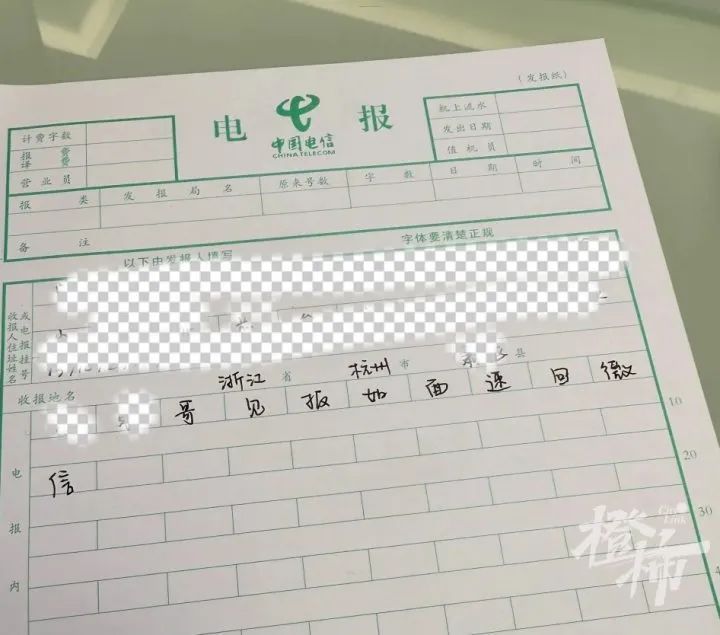 (发报纸)
电 中国电信 报
CHINA TELECOM
计费字数
报费
译费
营业员
机上流水
发出日期
值机员
报类 发报局名 原来号数 字数 日期 时间
备注
以下由发报人填写 字体要清楚正规
收报人住址姓名或电报挂号
收报地名 浙江省 杭州市 县
哥见报如面速回微
10
信
20
30
4
电报内
橙柿
City Link